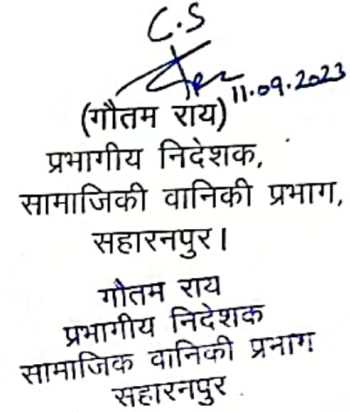 C.S
11.09.2023
(गौतम राय)
प्रभागीय निदेशक,
सामाजिकी वानिकी प्रभाग,
सहारनपुर।
गौतम राय
प्रभागीय निदेशक
सामाजिक वानिकी प्रभाग
सहारनपुर